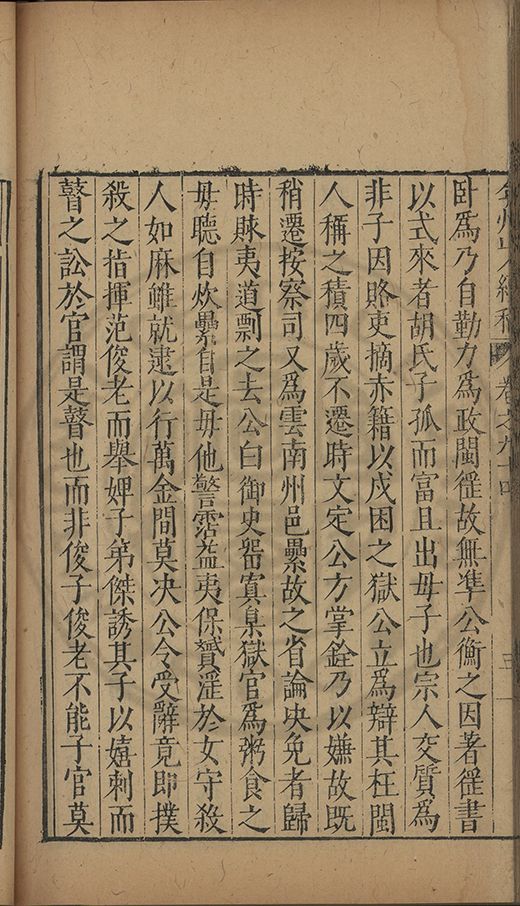 弇州山人續稿 卷之九十四 三
卧爲乃自勤力爲政閩徭故無準公衡之因著徭書
以式來者胡氏子孤而富且出母子也宗人交質爲
非子因賂吏摘赤籍以戍困之獄公立爲辯其枉閩
人稱之積四歲不遷時文定公方掌銓乃以嫌故既
稍遷按察司又爲雲南州邑纍故之省論决免者歸
時賕夷道剽之去公白御史畱寘臬獄官爲粥食之
毋聽自炊纍自是毋他警霑益夷保贇淫於女守殺
人如麻雖就逮以行萬金間莫决公令受辭竟即撲
殺之指揮范俊老而舉婢子第傑誘其子以嬉刺而
瞽之訟於官謂是瞽也而非俊子俊老不能子官莫